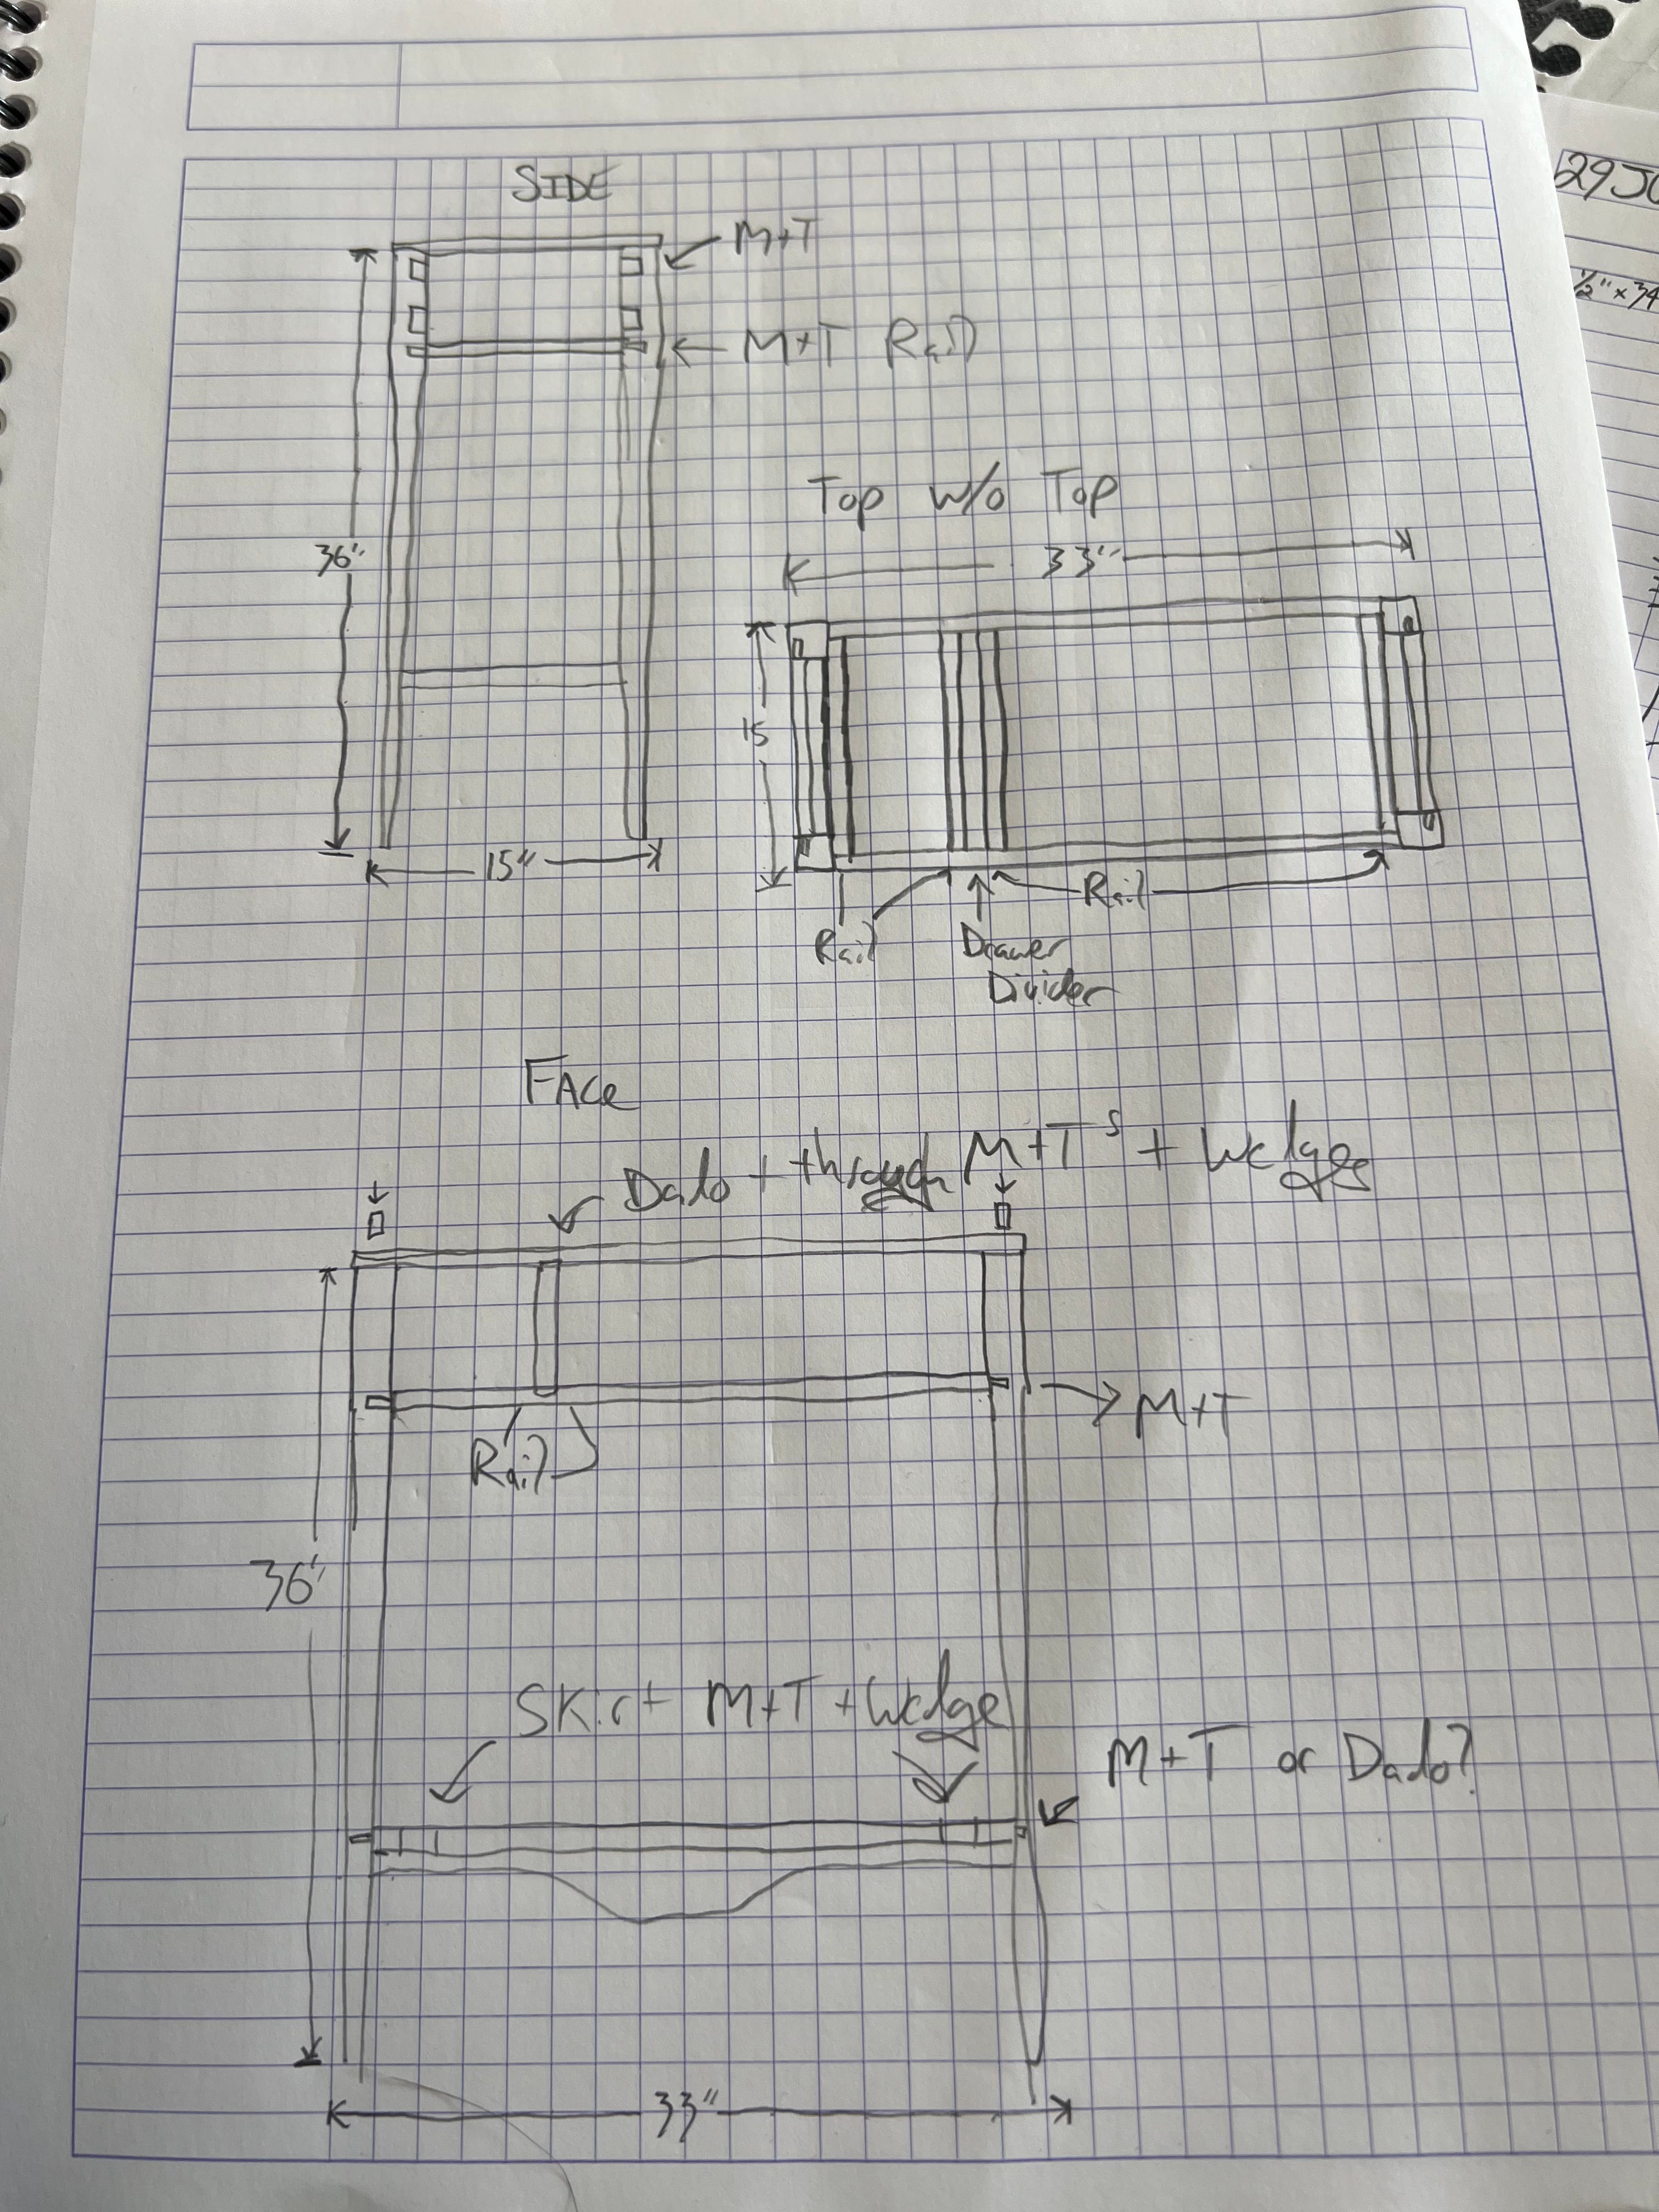 SIDE
M+T
M+T Rail
36"
15"
Top w/o Top
33"
15
Rail
Rail
Drawer
Divider
29JU
1/2" x 34
FACe
Dado + through M+Ts + Wedges
M+T
Rail
36"
Skirt M+T + Wedge
M+T or Dado?
33"